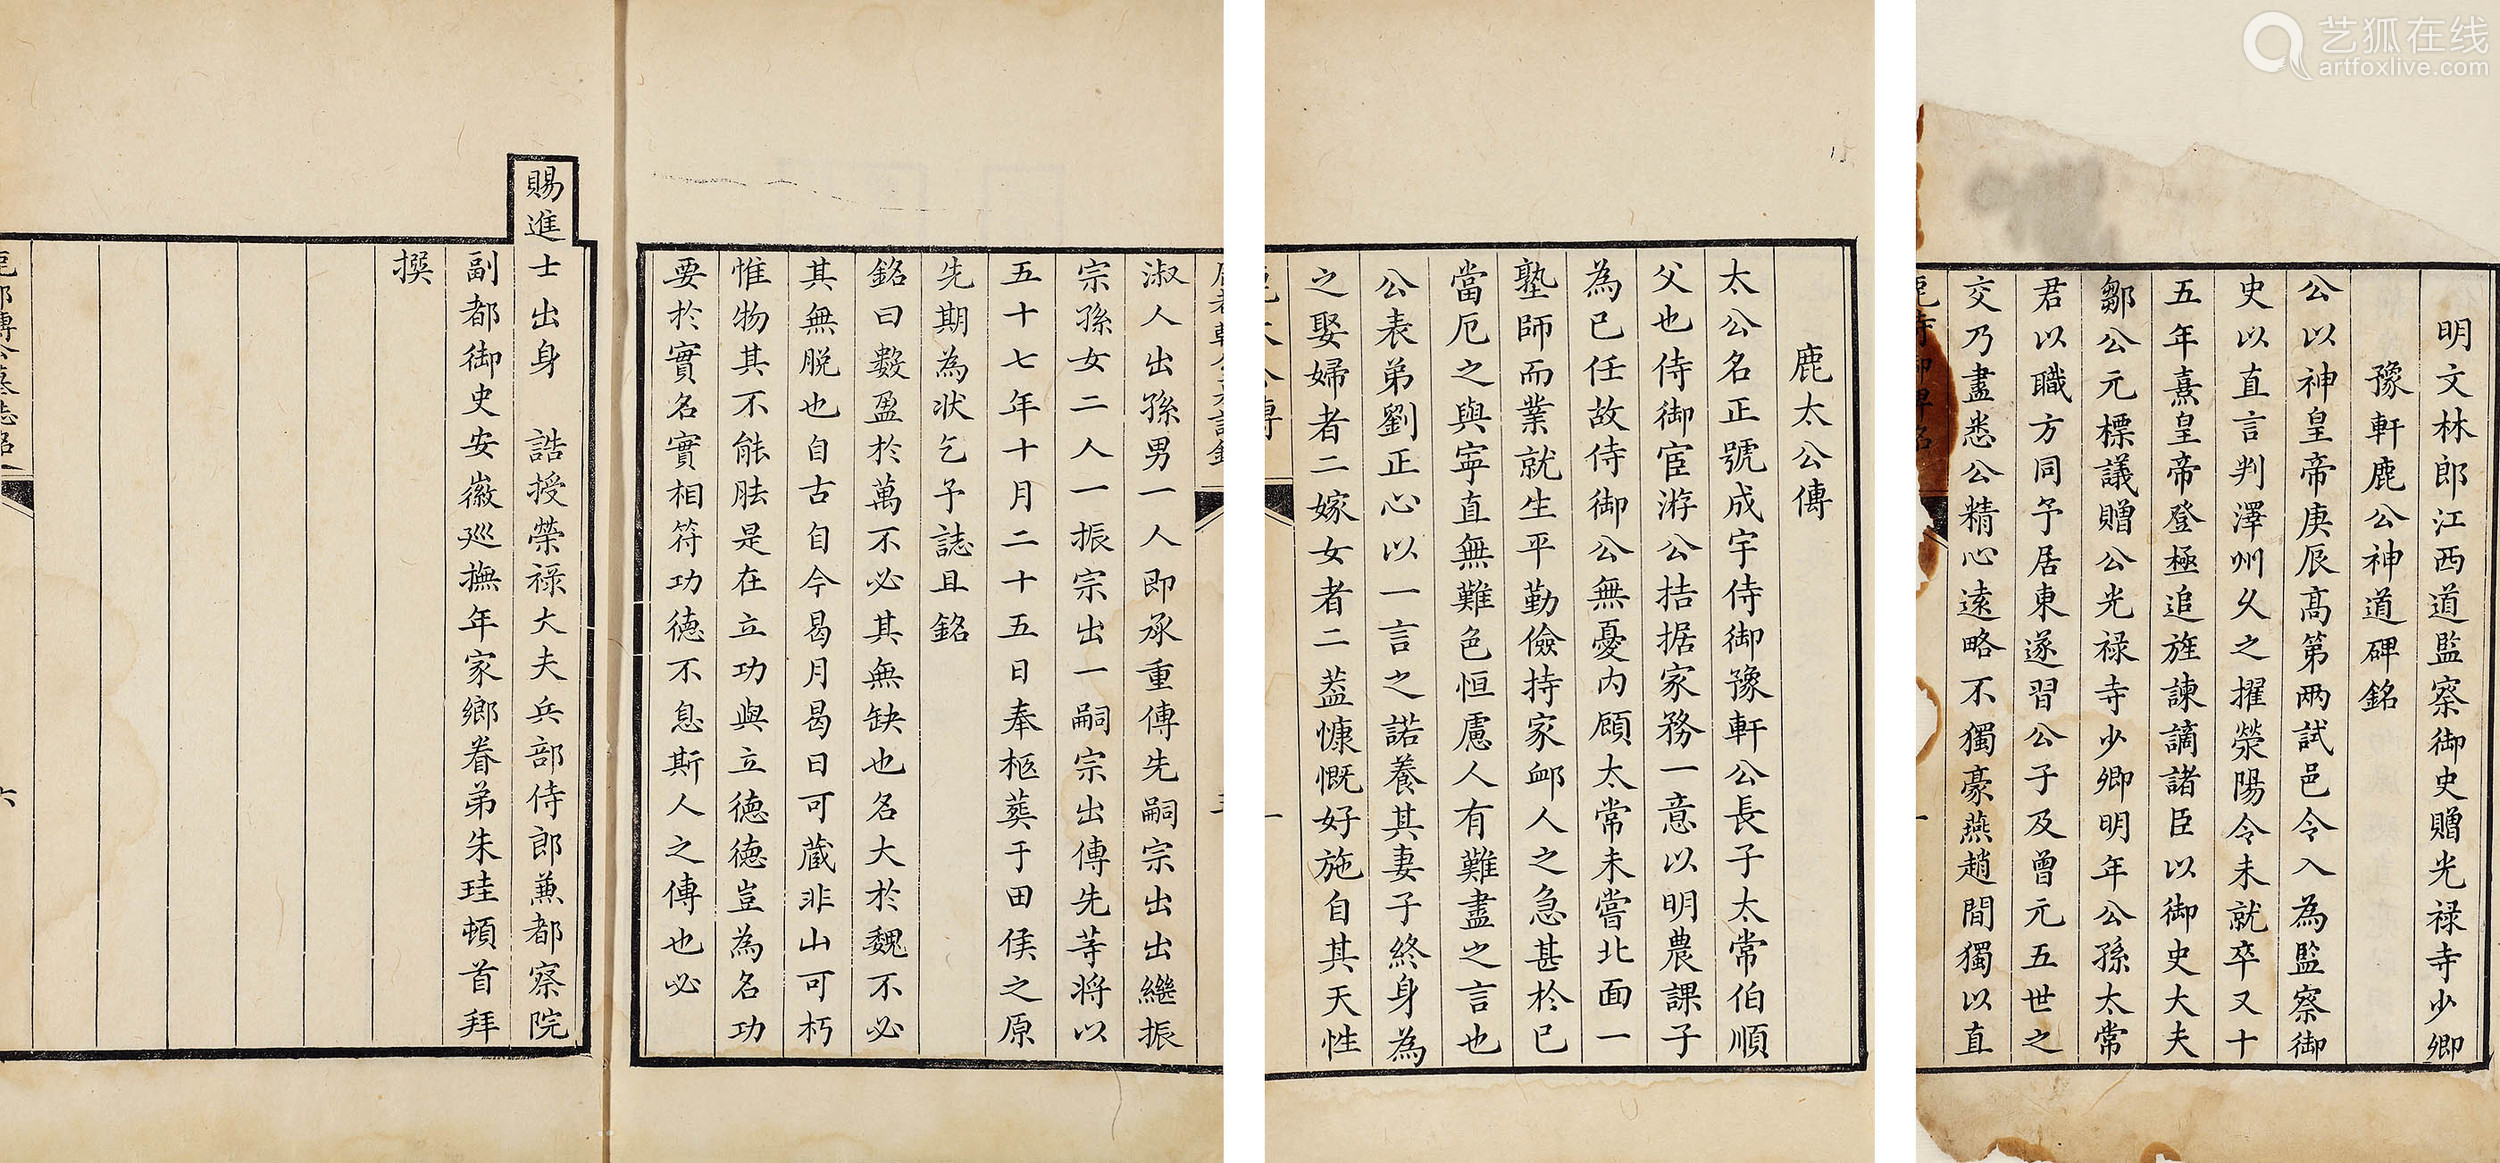 艺狐在线
artfoxlive.com
明文林郎江西道監察御史贈光禄寺少卿
豫軒鹿公神道碑銘
公以神皇帝庚辰髙第兩試邑令入為監察御
史以直言判澤州乆之擢滎陽令未就卒又十
五年熹皇帝登極追旌諫謫諸臣以御史大夫
鄒公元標議贈公光禄寺少卿明年公孫太常
君以職方同予居東遂習公子及曾元五世之
交乃盡悉公精心遠略不獨豪燕趙間獨以直
鹿太公傳
太公名正號成宇侍御豫軒公長子太常伯順
父也侍御宦游公拮据家務一意以明農課子
為已任故侍御公無憂内顧太常未嘗北面一
塾師而業就生平勤儉持家䘏人之急甚於已
當厄之與寕直無難色恒慮人有難盡之言也
公表弟劉正心以一言之諾養其妻子終身為
之娶婦者二嫁女者二葢慷慨好施自其天性
鹿太公傳
一
淑人出孫男一人即承重傳先嗣宗出出繼振
宗孫女二人一振宗出一嗣宗出傳先等将以
五十七年十月二十五日奉柩葬于田侯之原
先期為状乞予誌且銘
銘曰數盈於萬不必其無缺也名大於魏不必
其無脱也自古自今曷月曷日可蔵非山可朽
惟物其不能胠是在立功與立德德豈為名功
要於實名實相符功德不息斯人之傳也必
賜進士出身　誥授榮禄大夫兵部侍郎兼都察院
副都御史安徽廵撫年家鄉眷弟朱珪頓首拜
撰
六